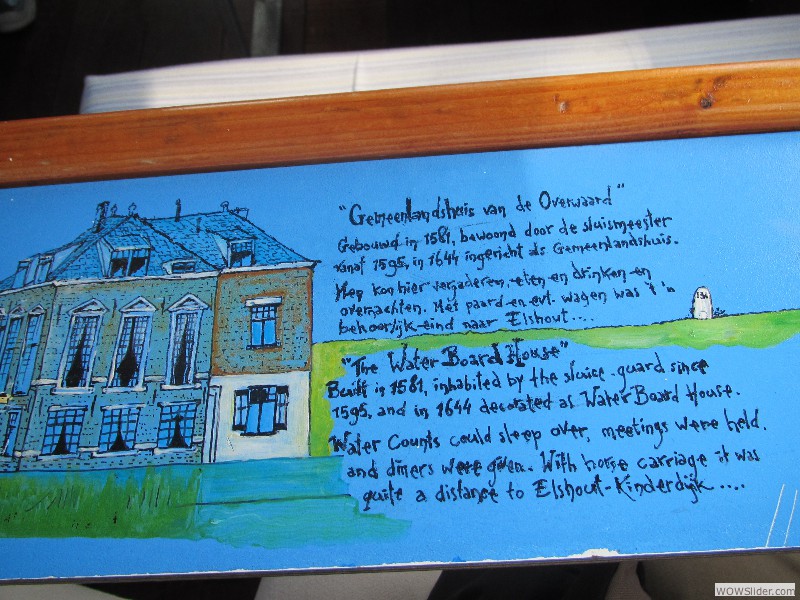 "Gemeenlandshuis van de Overwaard"
Gebouwd in 1581, bewoond door de sluismeester
vanaf 1595, in 1644 ingericht als Gemeenlandshuis.
Men kon hier vergaderen, eten en drinken en
overnachten. Met paard en evt. wagen was 't 'n
behoorlijk eind naar Elshout....
"The Water Board House"
Built in 1581, inhabited by the sluice-guard since
1595, and in 1644 decorated as Water Board House.
Water Counts could sleep over, meetings were held,
and diners were given. With horse carriage it was
quite a distance to Elshout-Kinderdijk....
WOWSlider.com